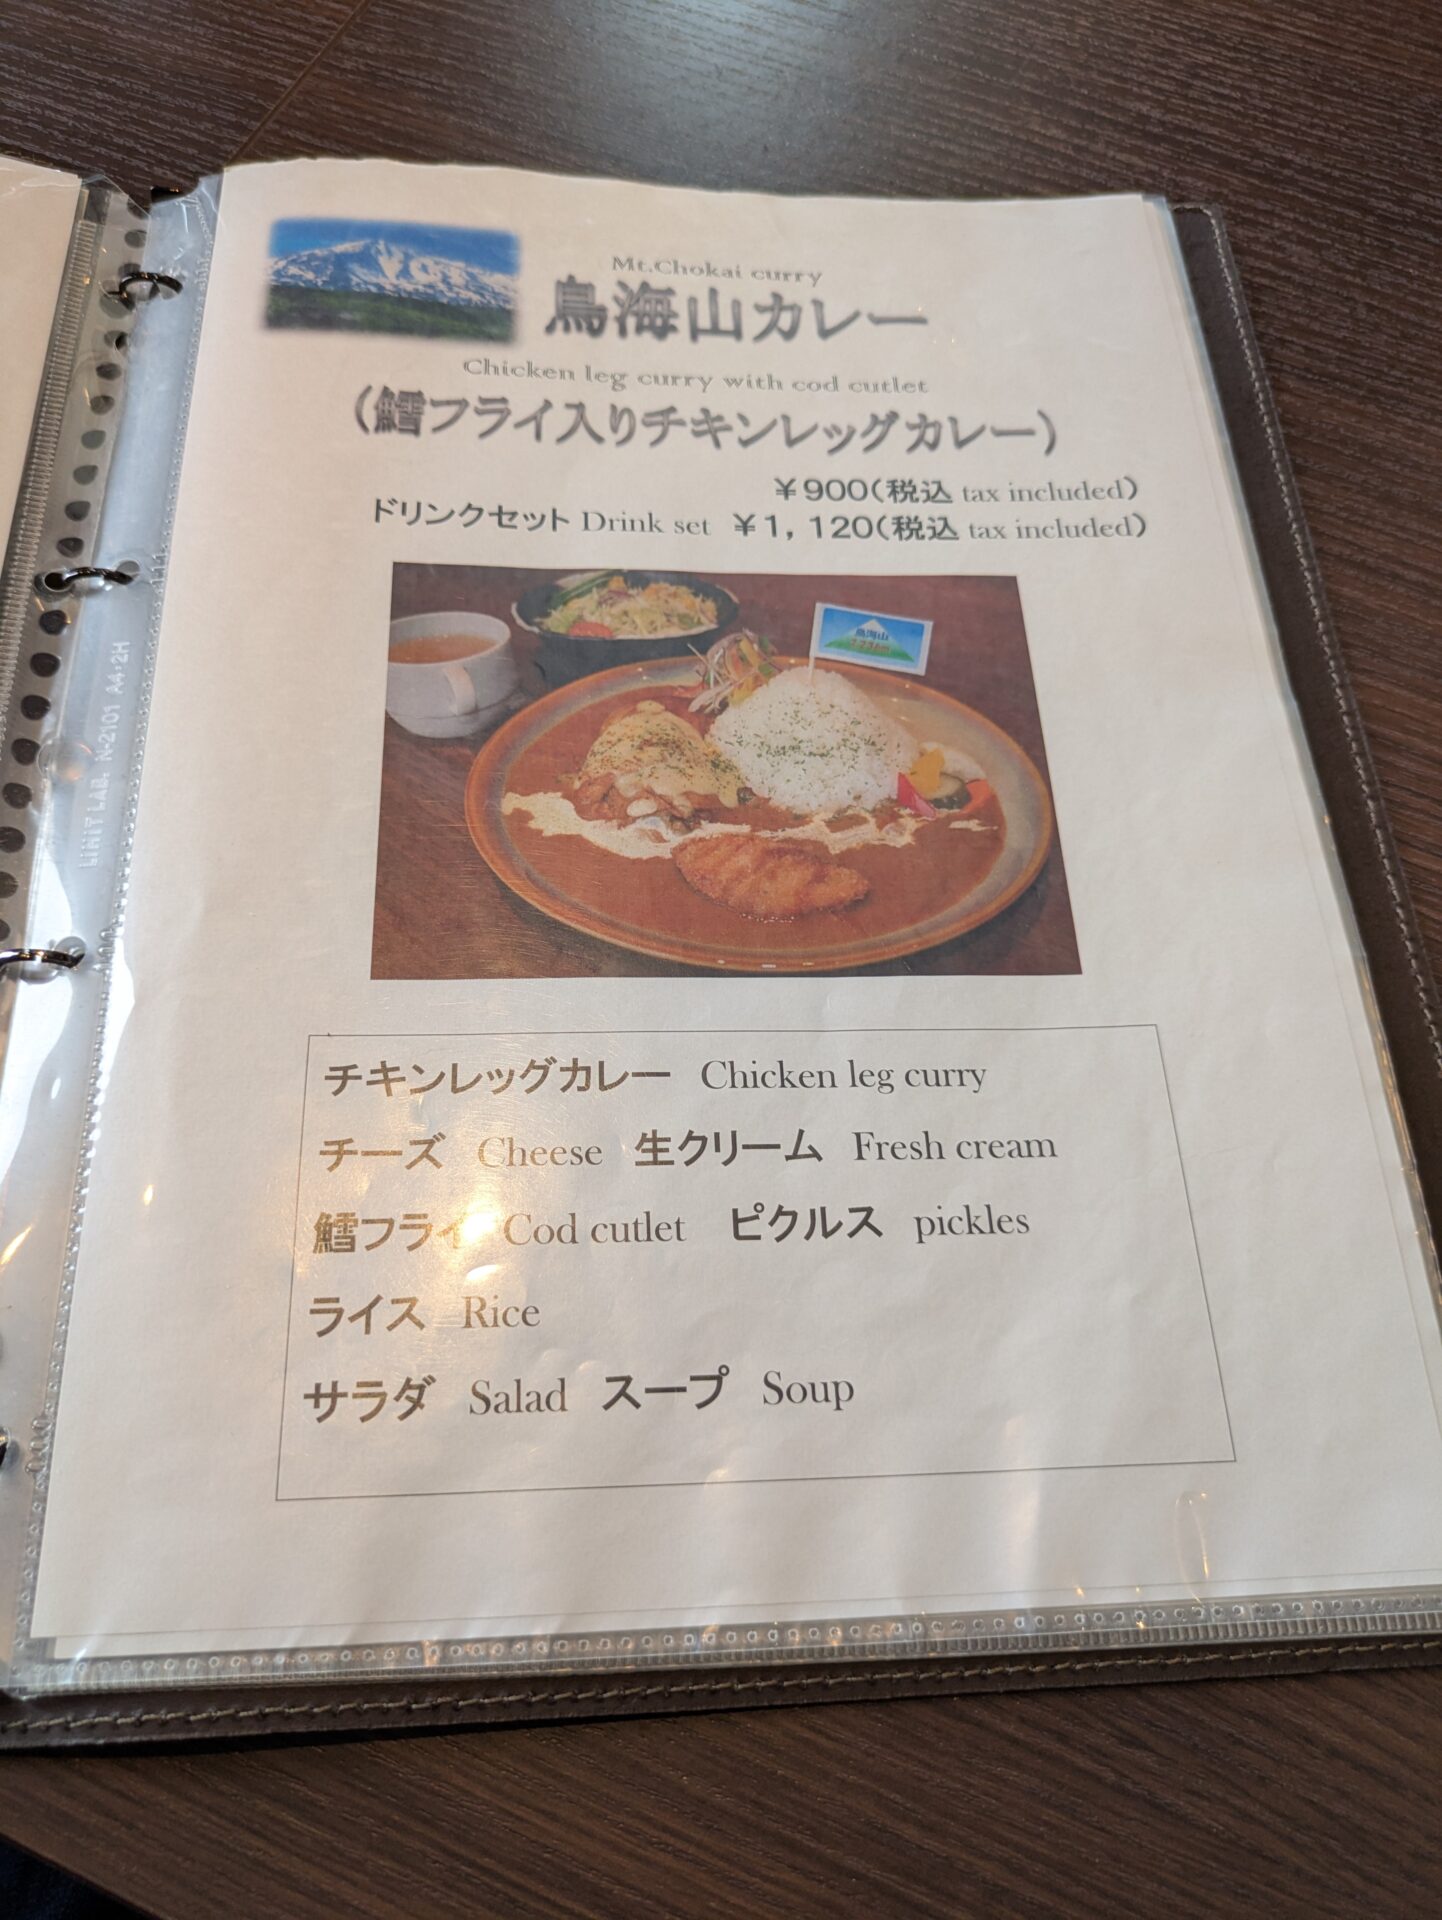 Mt.Chokai curry
鳥海山カレー
Chicken leg curry with cod cutlet
（鱈フライ入りチキンレッグカレー）
￥900（税込 tax included）
ドリンクセット Drink set ￥1，120（税込 tax included）
鳥海山
2,236m
チキンレッグカレー Chicken leg curry
チーズ Cheese 生クリーム Fresh cream
鱈フライ Cod cutlet ピクルス pickles
ライス Rice
サラダ Salad スープ Soup
LIHIT LAB. N-2101 A4・2H